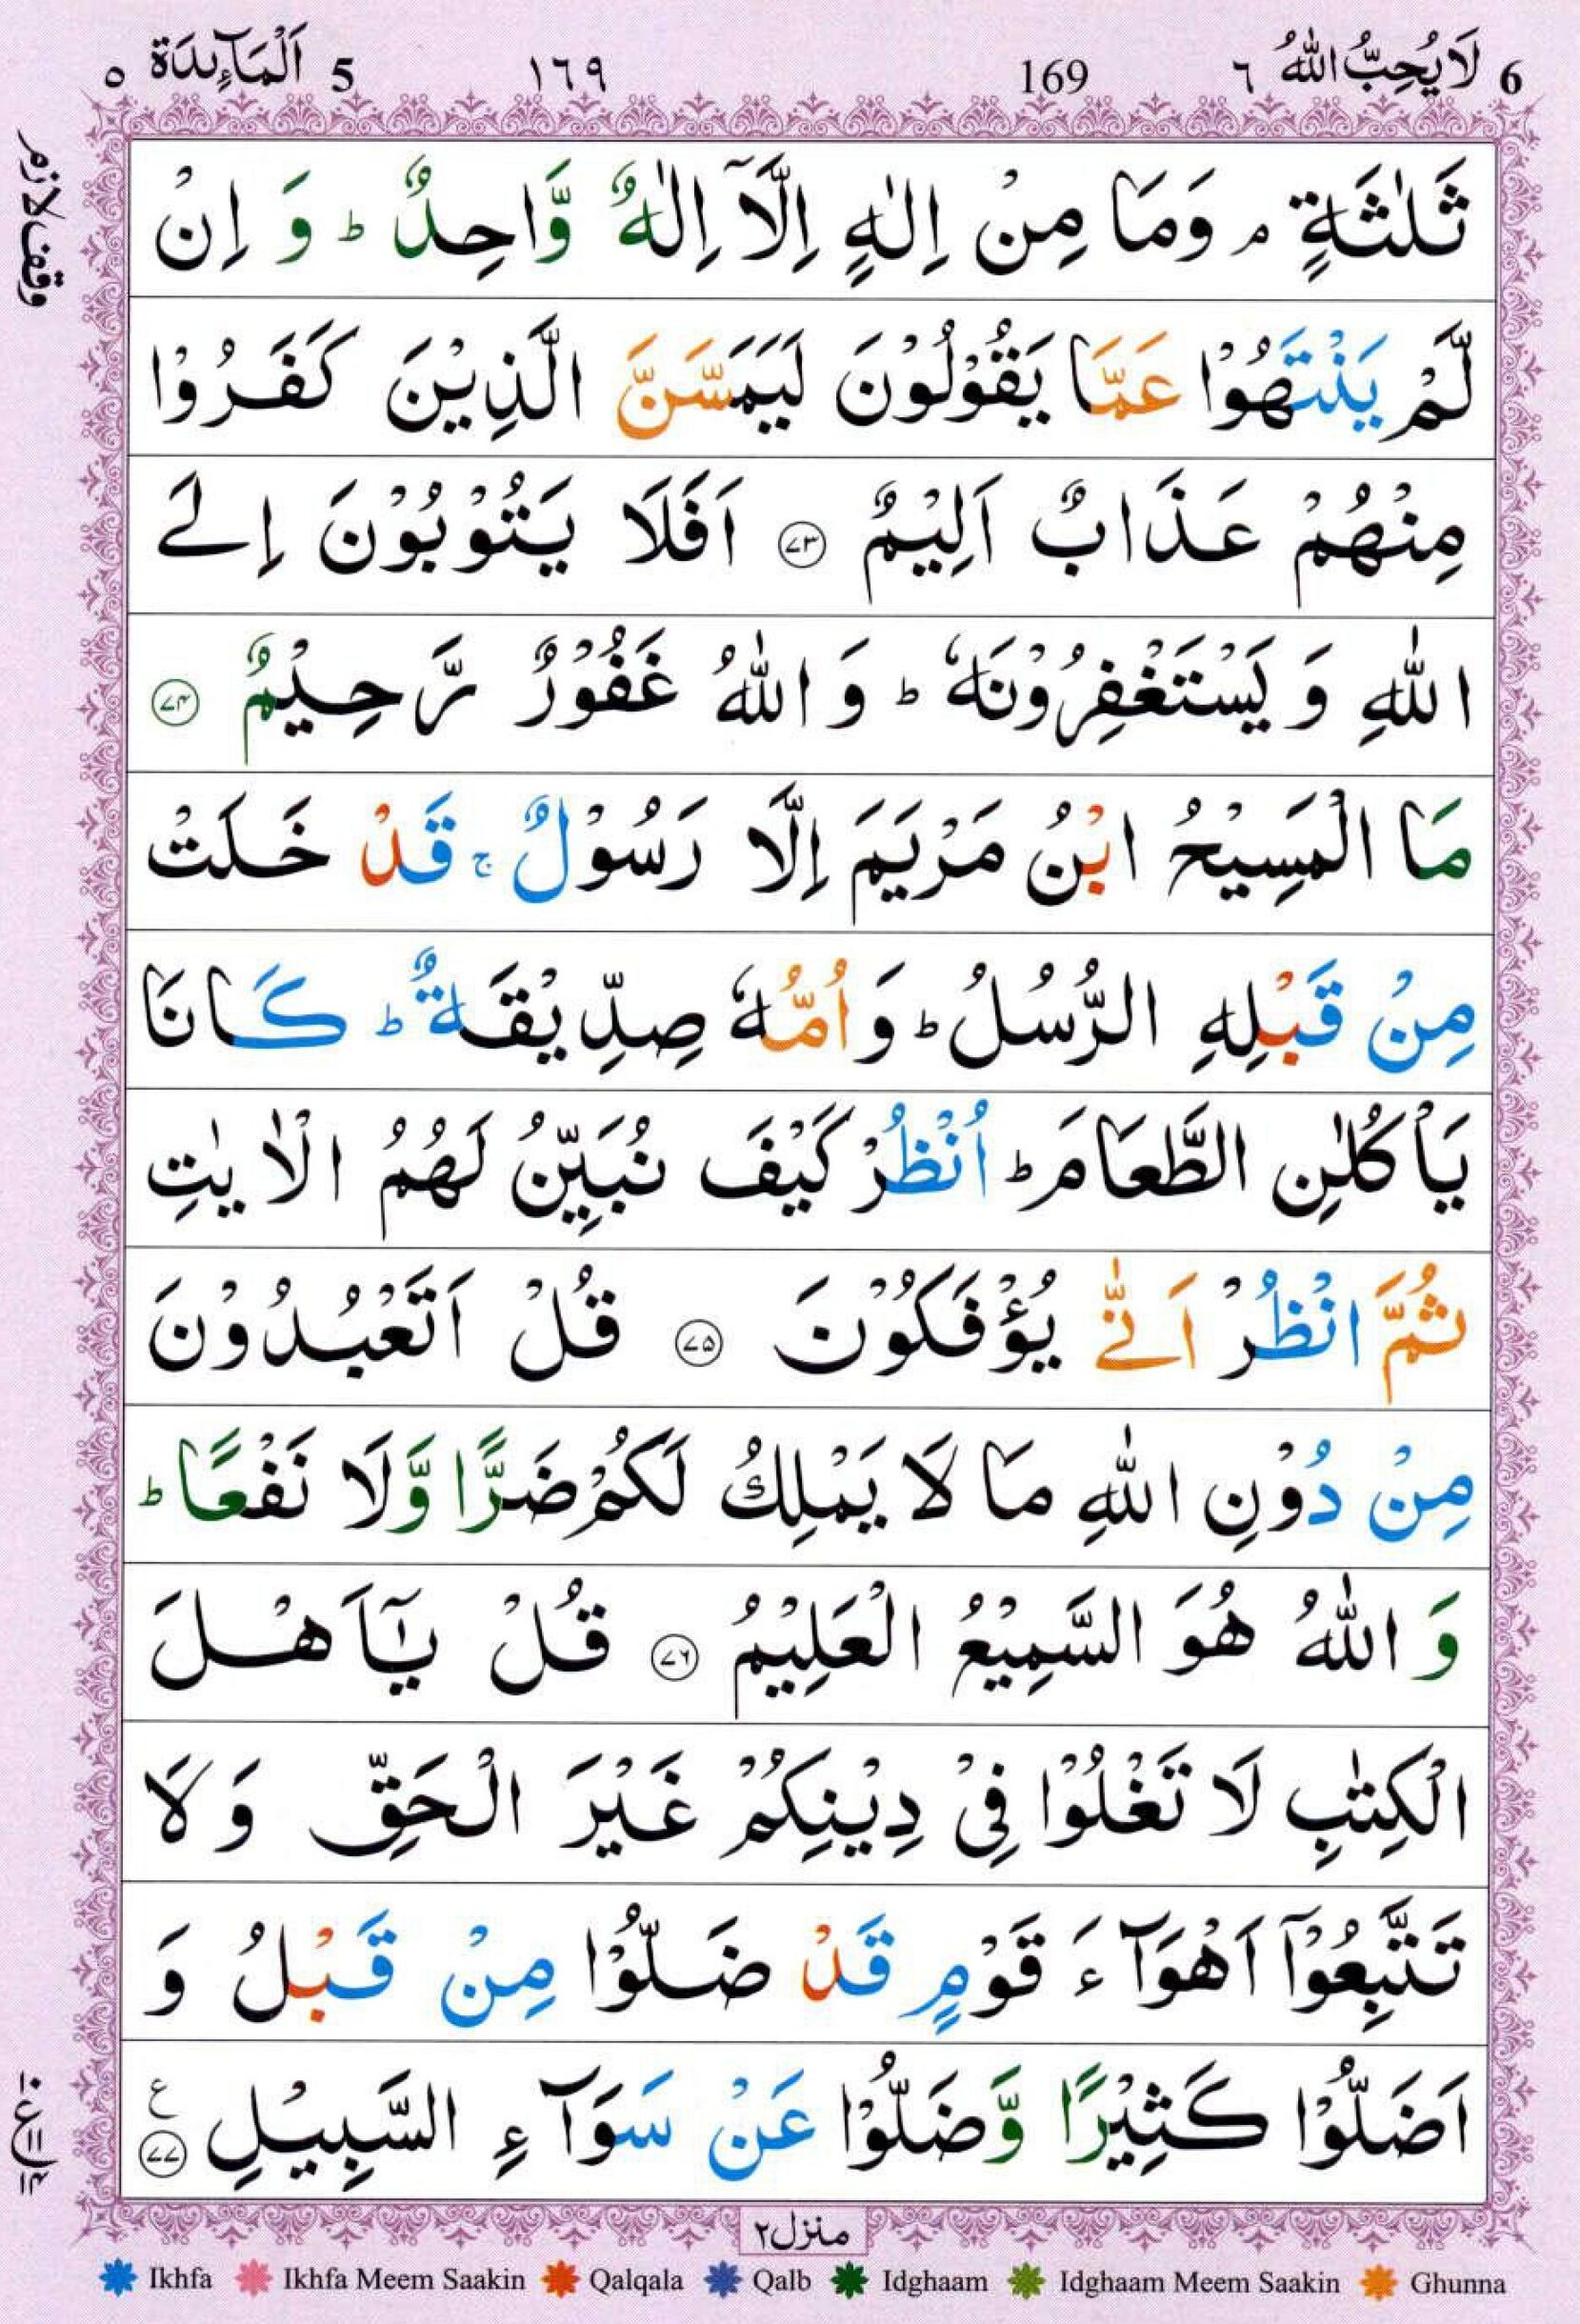 6 لَا يُحِبُّ اللّٰهُ ٦ 169 ١٦٩ 5 اَلْمَآئِدَة ٥
وقف لازم
ثَلٰثَةٍ ۘ وَمَا مِنْ اِلٰهٍ اِلَّاۤ اِلٰهٌ وَّاحِدٌ ؕ وَ اِنْ
لَّمْ يَنْتَهُوْا عَمَّا يَقُوْلُوْنَ لَيَمَسَّنَّ الَّذِيْنَ كَفَرُوْا
مِنْهُمْ عَذَابٌ اَلِيْمٌ ﴿۷۳﴾ اَفَلَا يَتُوْبُوْنَ اِلَى
اللّٰهِ وَ يَسْتَغْفِرُوْنَهٗ ؕ وَ اللّٰهُ غَفُوْرٌ رَّحِيْمٌ ﴿۷۴﴾
مَا الْمَسِيْحُ ابْنُ مَرْيَمَ اِلَّا رَسُوْلٌ ۚ قَدْ خَلَتْ
مِنْ قَبْلِهِ الرُّسُلُ ؕ وَ اُمُّهٗ صِدِّيْقَةٌ ؕ كَانَا
يَاْكُلٰنِ الطَّعَامَ ؕ اُنْظُرْ كَيْفَ نُبَيِّنُ لَهُمُ الْاٰيٰتِ
ثُمَّ انْظُرْ اَنّٰى يُؤْفَكُوْنَ ﴿۷۵﴾ قُلْ اَتَعْبُدُوْنَ
مِنْ دُوْنِ اللّٰهِ مَا لَا يَمْلِكُ لَكُمْ ضَرًّا وَّلَا نَفْعًا ؕ
وَ اللّٰهُ هُوَ السَّمِيْعُ الْعَلِيْمُ ﴿۷۶﴾ قُلْ يٰۤاَهْلَ
الْكِتٰبِ لَا تَغْلُوْا فِيْ دِيْنِكُمْ غَيْرَ الْحَقِّ وَ لَا
تَتَّبِعُوْۤا اَهْوَآءَ قَوْمٍ قَدْ ضَلُّوْا مِنْ قَبْلُ وَ
اَضَلُّوْا كَثِيْرًا وَّضَلُّوْا عَنْ سَوَآءِ السَّبِيْلِ ﴿۷۷﴾ ع
منزل٢
Ikhfa Ikhfa Meem Saakin Qalqala Qalb Idghaam Idghaam Meem Saakin Ghunna